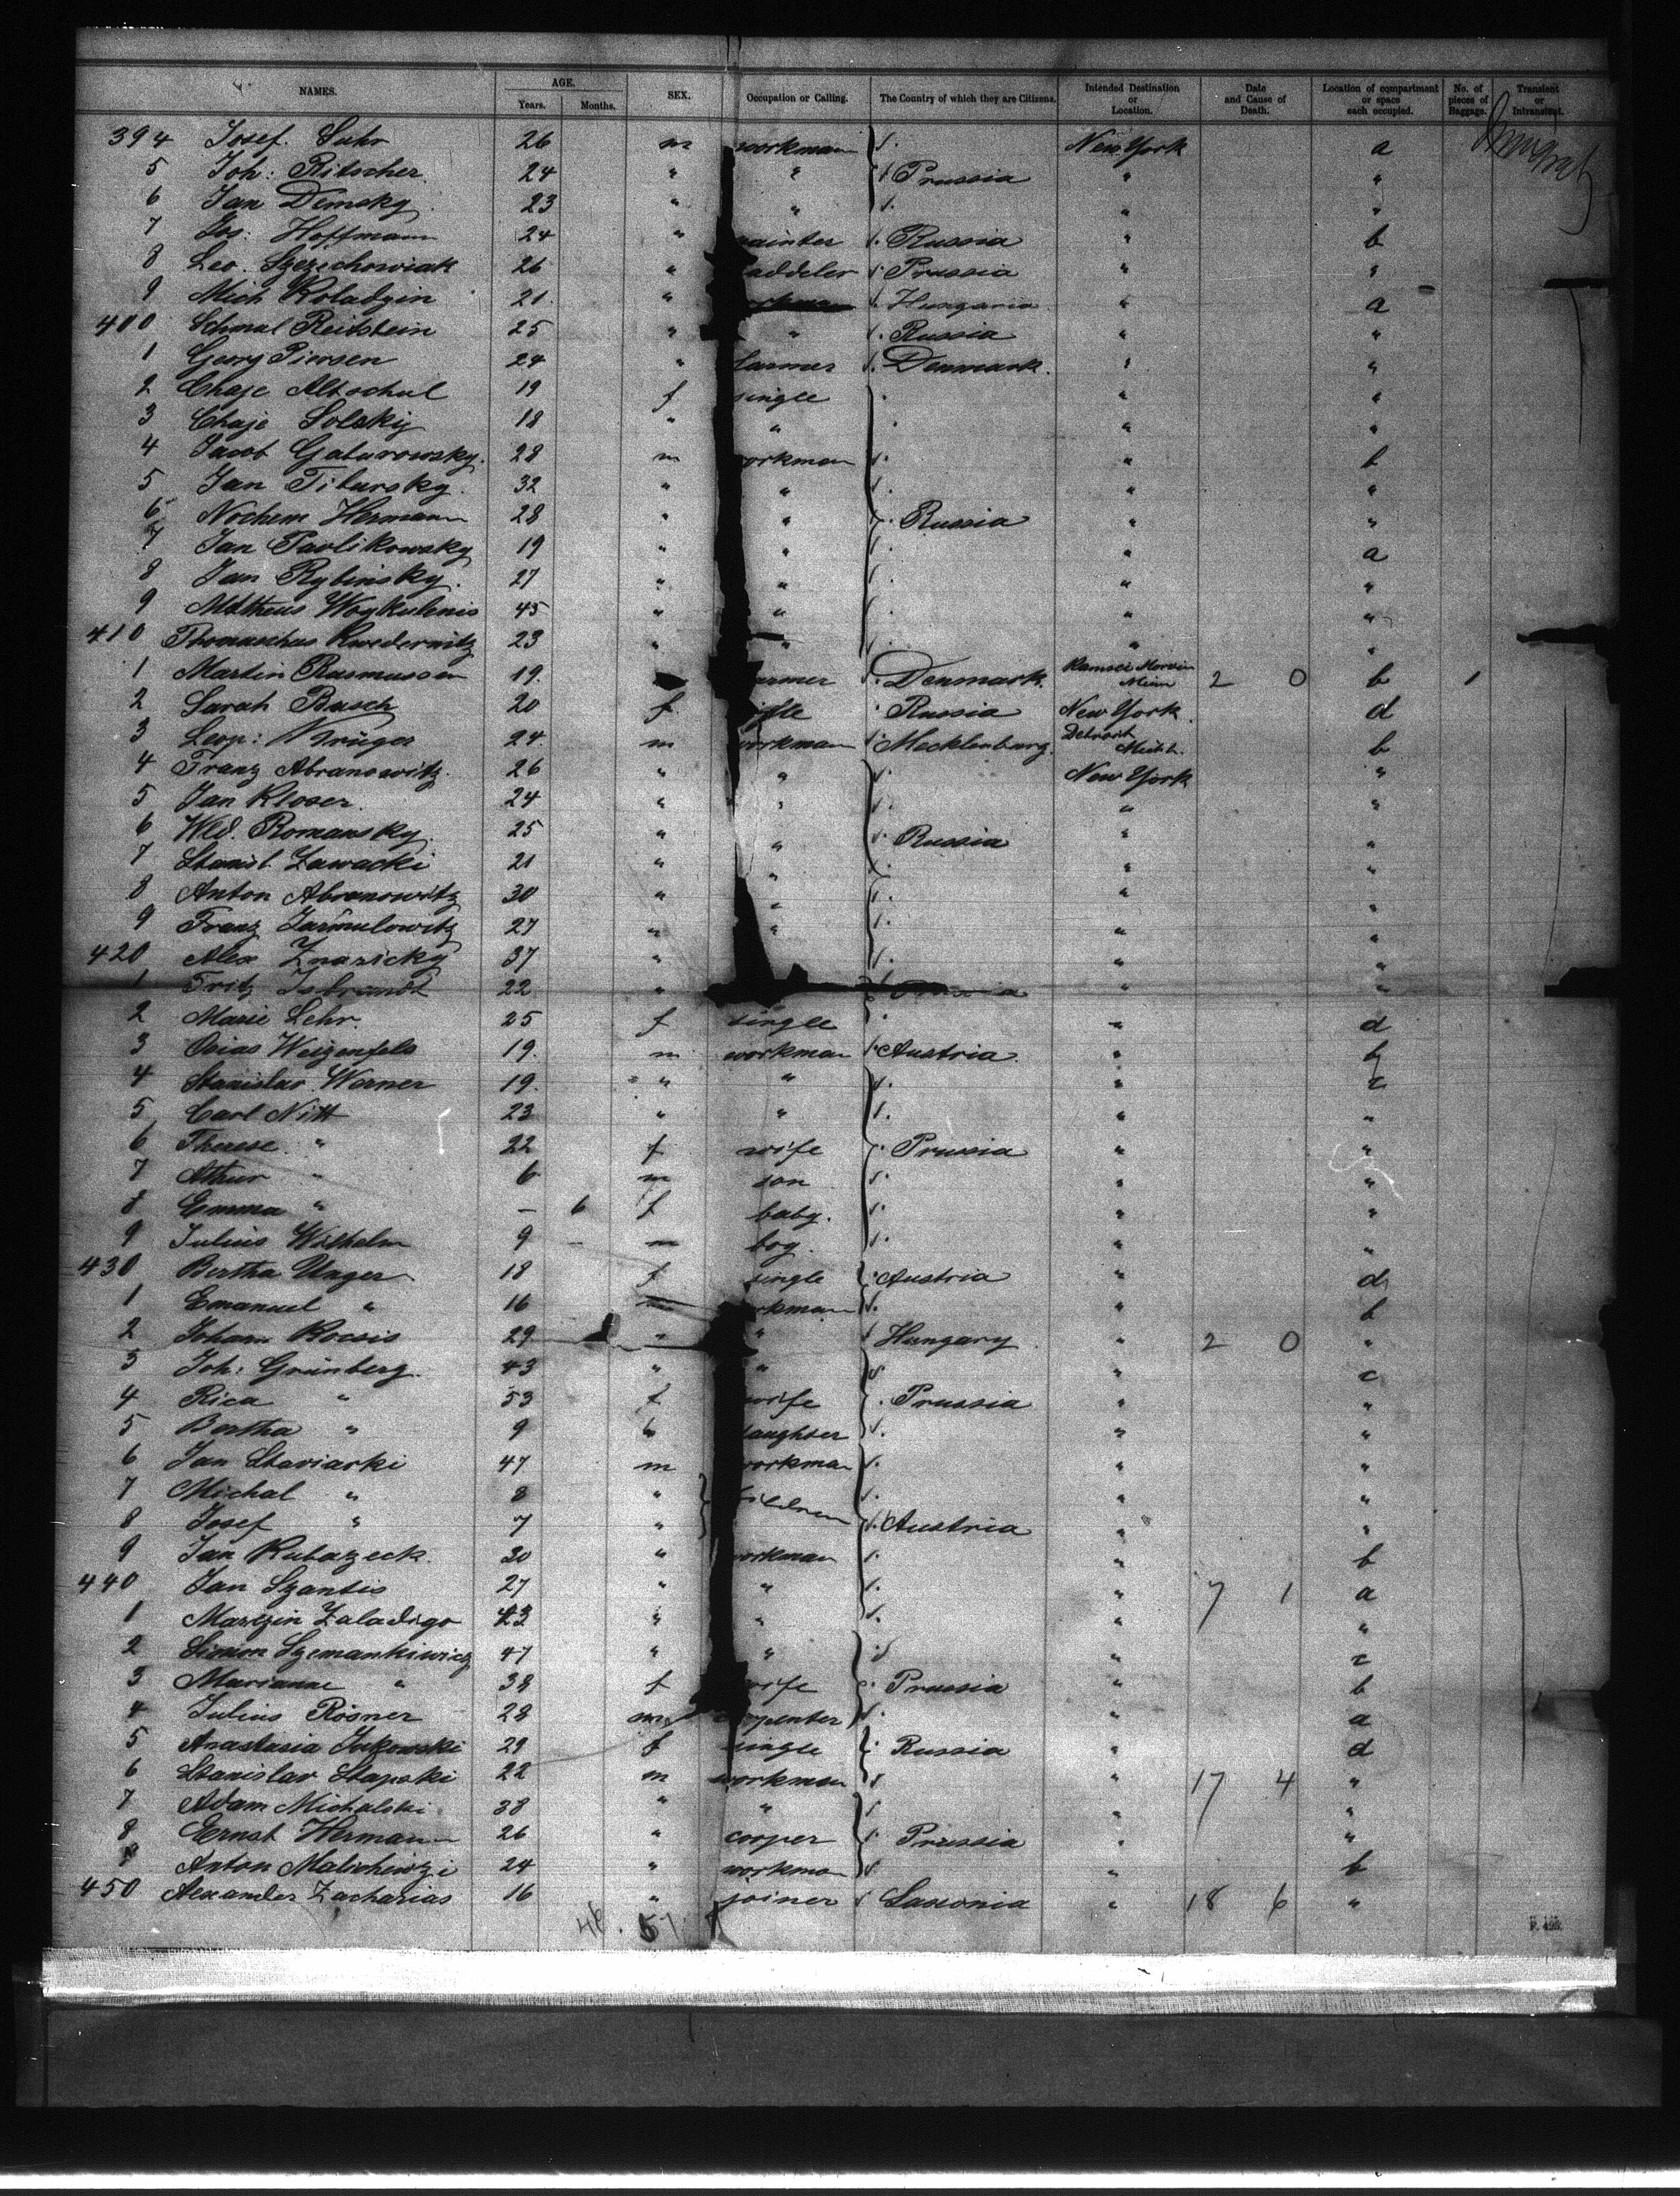 NAMES. AGE. Years. Months. SEX. Occupation or Calling. The Country of which they are Citizens. Intended Destination or Location. Date and Cause of Death. Location of compartment or space each occupied. No. of pieces of Baggage. Transient or Intransient.
394 Josef Suhr 26 m workman New York a
5 Joh: Ritscher 24 " " Prussia " "
6 Jan Demsky 23 " " " "
7 Jos: Hoffmann 24 " painter Russia " b
8 Leo. Szezechowiak 26 " saddeler Prussia " "
9 Mich Koladzin 21 " workman Hungaria " a
400 Schmul Reitstein 25 " " Russia " "
1 Georg Piersen 24 " farmer Denmark " "
2 Chaje Altschul 19 f single " "
3 Chaje Solskij 18 " " " "
4 Jacob Gaturowsky 28 m workman " b
5 Jan Tibursky 32 " " " "
6 Nochem Hermann 28 " " Russia " "
7 Jan Pavlikowsky 19 " " " a
8 Jan Rybinsky 27 " " " "
9 Mattheus Woykulenis 45 " " " "
410 Thomaschus Kwedernitz 23 " " " "
1 Martin Rasmussen 19 farmer Denmark Minn 2 0 b 1
2 Sarah Busch 20 f Russia New York d
3 Leop: Krüger 24 m workman Mecklenburg. Detroit Mich. b
4 Franz Abranowitz 26 " " New York "
5 Jan Kloser 24 " " " "
6 Wld. Romansky 25 " " Russia " "
7 Stanisl. Zawacki 21 " " " "
8 Anton Abranowitz 30 " " " "
9 Franz Jarmulowitz 27 " " " "
420 Alex Znaricky 37 " " "
1 Fritz Isbrandt 22 " " "
2 Marie Lehr 25 f single " d
3 Osias Weizenfels 19 m workman Austria " b
4 Stanislav Werner 19 " " " c
5 Carl Nitt 23 " " " "
6 Therese " 22 f wife Prussia " "
7 Athur " 6 m son " "
8 Emma " – 6 f baby. " "
9 Julius Wilhelm 9 – m boy. " "
430 Bertha Unger 18 f single Austria " d
1 Emanuel " 16 m workman " b
2 Johann Kocsis 29 " " Hungary " 2 0 "
3 Joh: Grünberg 43 " " " c
4 Rica " 53 f wife Prussia " "
5 Bertha " 9 " daughter " "
6 Jan Staviarki 47 m workman " "
7 Michal " 8 " children " "
8 Josef " 7 " Austria " "
9 Jan Kubazeck 30 " workman " b
440 Jan Szantis 27 " " " 7 1 a
1 Martzin Zaladigo 43 " " " "
2 Simon Szemankiwicz 47 " " " c
3 Marianne " 38 f wife Prussia " b
4 Julius Rösner 28 m carpenter " a
5 Anastasia Jukowski 29 f single Russia " d
6 Stanislav Stapski 22 m workman " 17 4 "
7 Adam Michalski 38 " " " "
8 Ernst Hermann 26 " cooper Prussia " "
9 Anton 24 " workman " b
450 Alexander Zacharias 16 " joiner Saxonia " 18 6 "